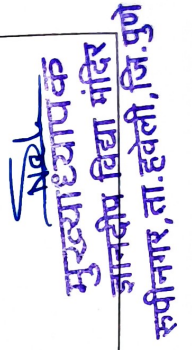 मुख्याध्यापक
ज्ञानदीप विद्या मंदिर
रुपीनगर, ता. हवेली, जि. पुणे